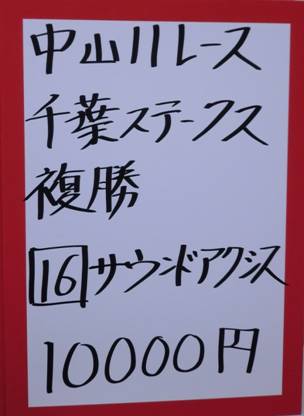 中山11レース
千葉ステークス
複勝
16 サウンドアクシス
10000円